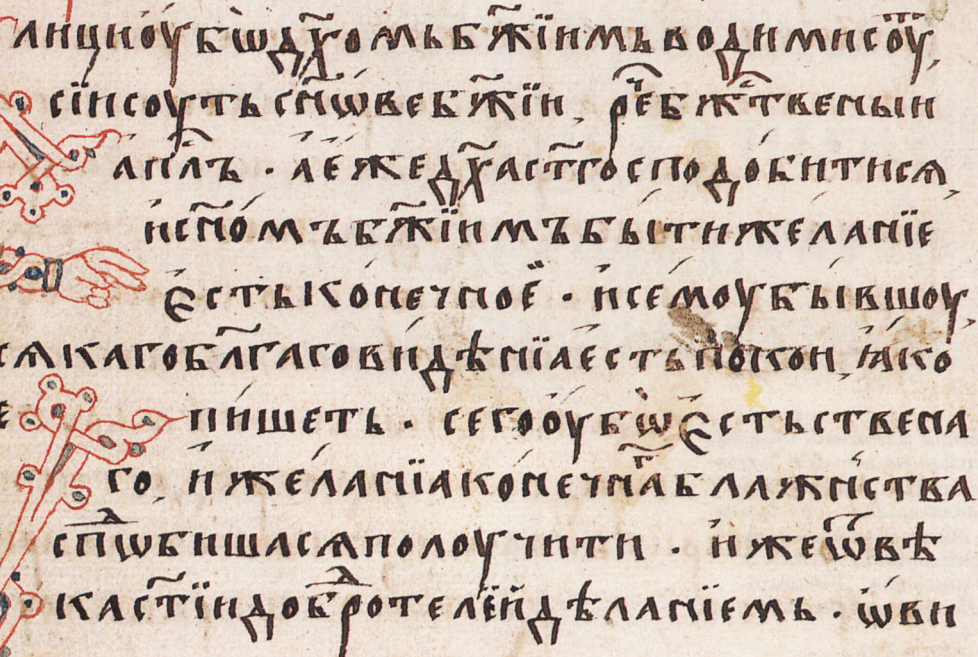 лицꙑ оубѡ дх҃омь бж҃їимъ водими соу
сїи соуть сн҃ѡве бж҃їи, рⷱ҇е бжⷭ҇твеныи
ап҃лъ · а еже дх҃а ст҃го сподобитися,
и сн҃омъ бж҃їимъ быти желанїе
єсть конечное · и семоу бывшоу,
сѧкаго бл҃гаго видѣнїа есть покои, ꙗко
пишеть · сего оубѡ єстьствена
го, и желанїа конечнаг блаженства
спⷣѡбишасѧ полоучити · иже ѿ вѣ
ка ст҃їи добрⷪ҇отелей дѣланїемь · ѡви